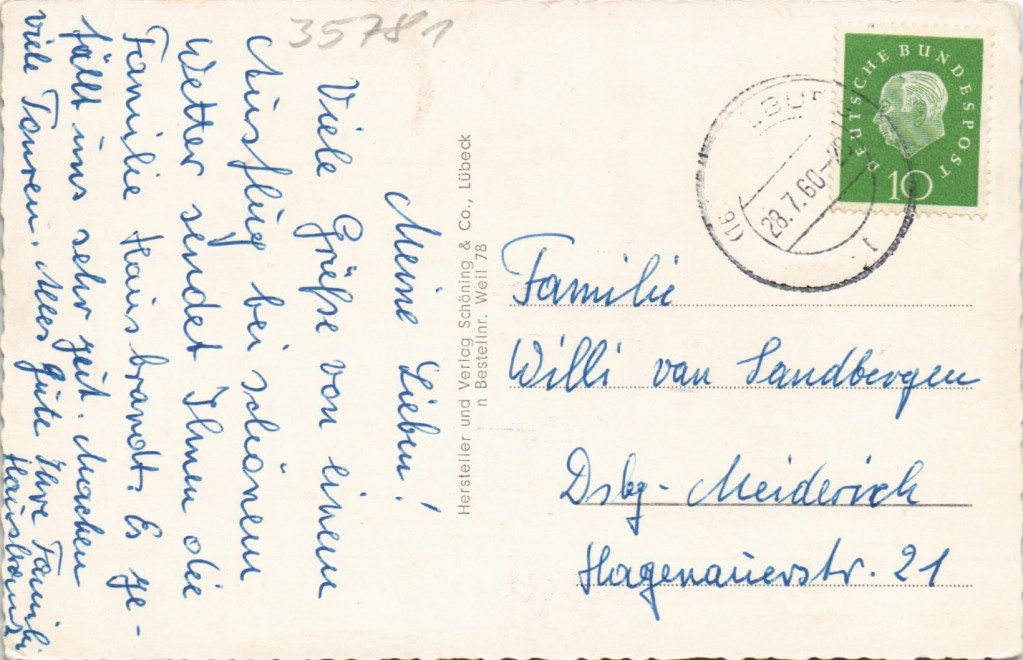 35781
Meine Lieben!
Viele Grüße von einem
Ausflug bei schönem
Wetter sendet Ihnen die
Familie Hausbrandt. Es ge-
fällt uns sehr gut. Machen
viele Touren. Alles Gute Ihre Familie
Hausbrandt
Hersteller und Verlag Schöning & Co., Lübeck
n Bestellnr. Weil 78
DEUTSCHE BUNDESPOST
10
(16
28.7.60
Familie
Willi van Sandbergen
Dsbg-Meiderich
Hagenauerstr. 21